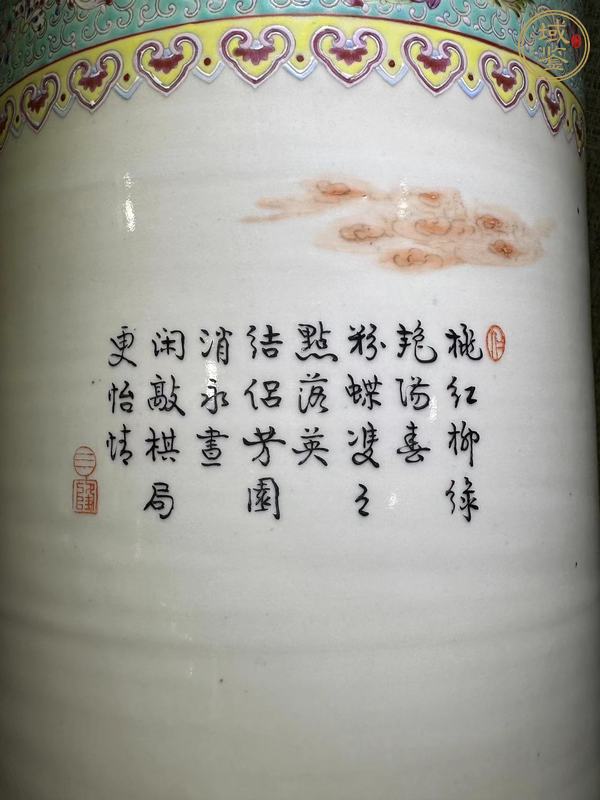 桃红柳绿
艳阳春
粉蝶双之
點落英
结侣芳園
消永晝
闲敲棋局
更怡情
域鉴